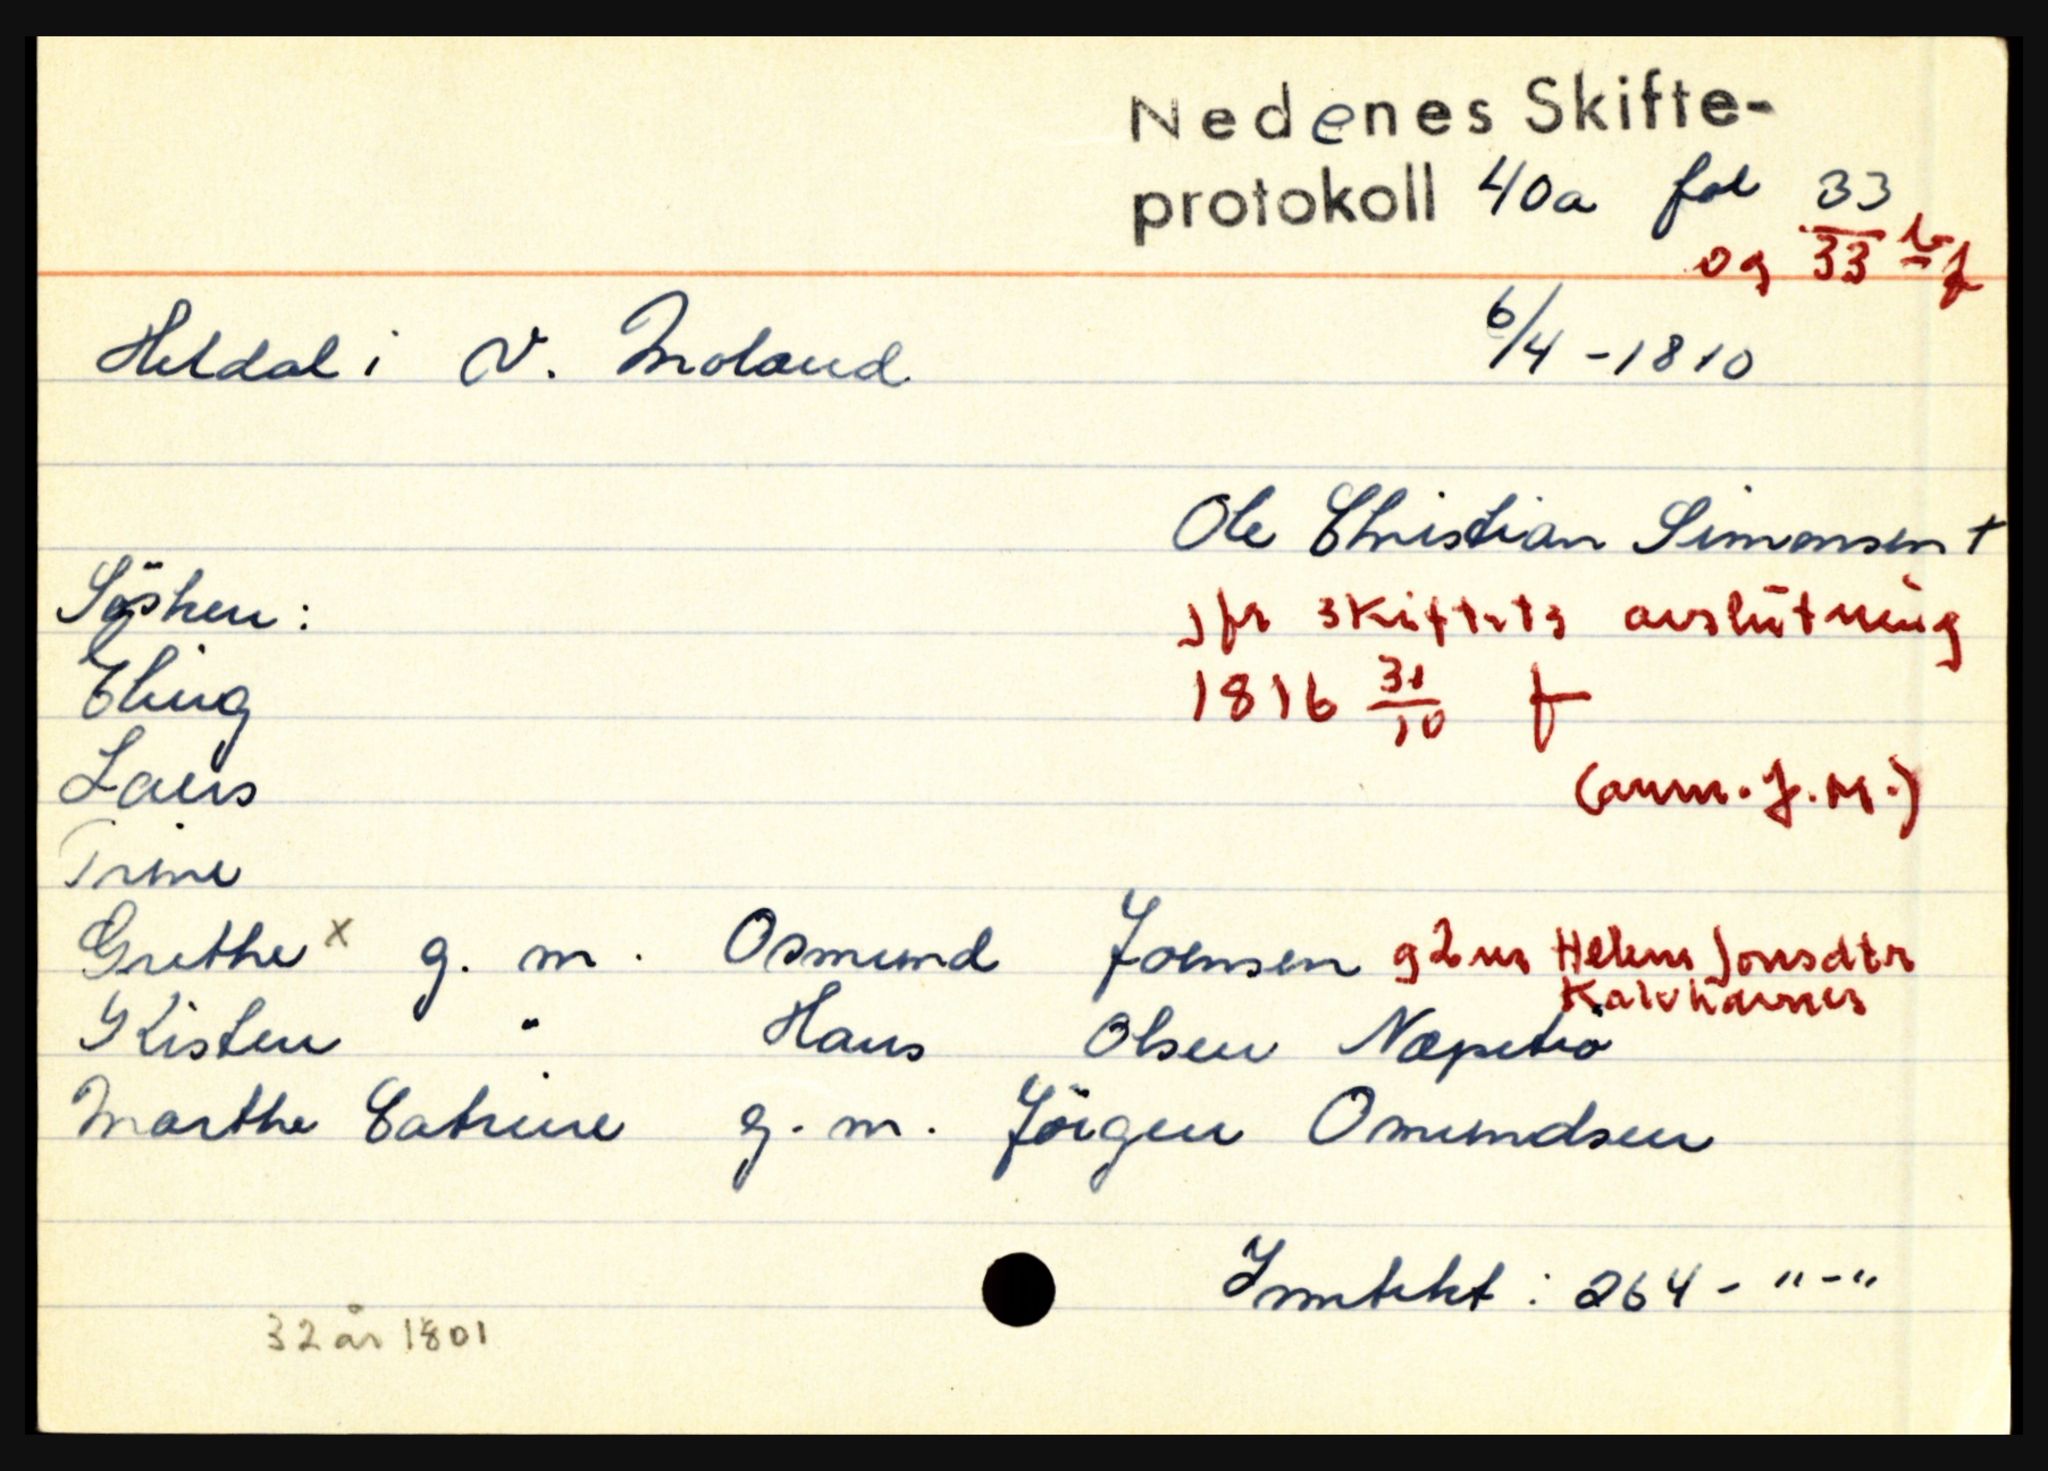 Nedenes Skifte-
protokoll 40a fol 33
og 33 b f
Heldal i V. Moland 6/4 - 1810
Ole Christian Simonsen +
Söshen:
jfr skiftets avslutning
Eling
1816 31/10 f
Laers
(anm. J. M.)
Trine
Grethe x g. m. Osmund Joensen g 2 m Helene Jonsdtr
Kalvhavnes
Kisten " Hans Olsen Næpetrö
Marthe Catrine g. m. Jörgen Omundsen
Inntekt : 264 - " - "
32 år 1801